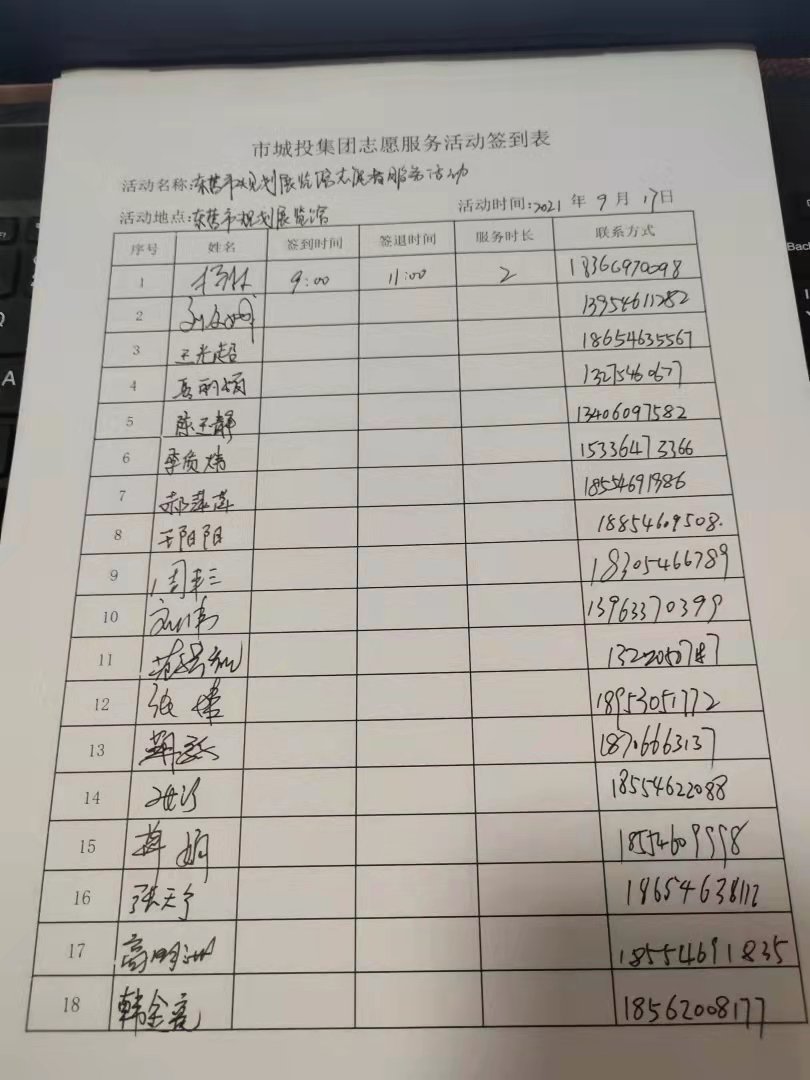 市城投集团志愿服务活动签到表
活动名称:东营市规划展览馆志愿者服务活动
活动地点:东营市规划展览馆 活动时间:2021 年 9 月 17日
序号 姓名 签到时间 签退时间 服务时长 联系方式
1 9:00 11:00 2 18366970098
2 13954611282
3 王光超 18654635567
4
5 陈玉静 13406097582
6 季质炜 15336473366
7 郝萍萍
8 王阳阳
9 18305466789
10 刘伟 13963370399
11
12 张婧 18953051772
13 18706663137
14 18554622088
15 薛娟 18554609998
16 张天宁 18654638112
17 高明洲 18554691835
18 韩金亮 18562008177